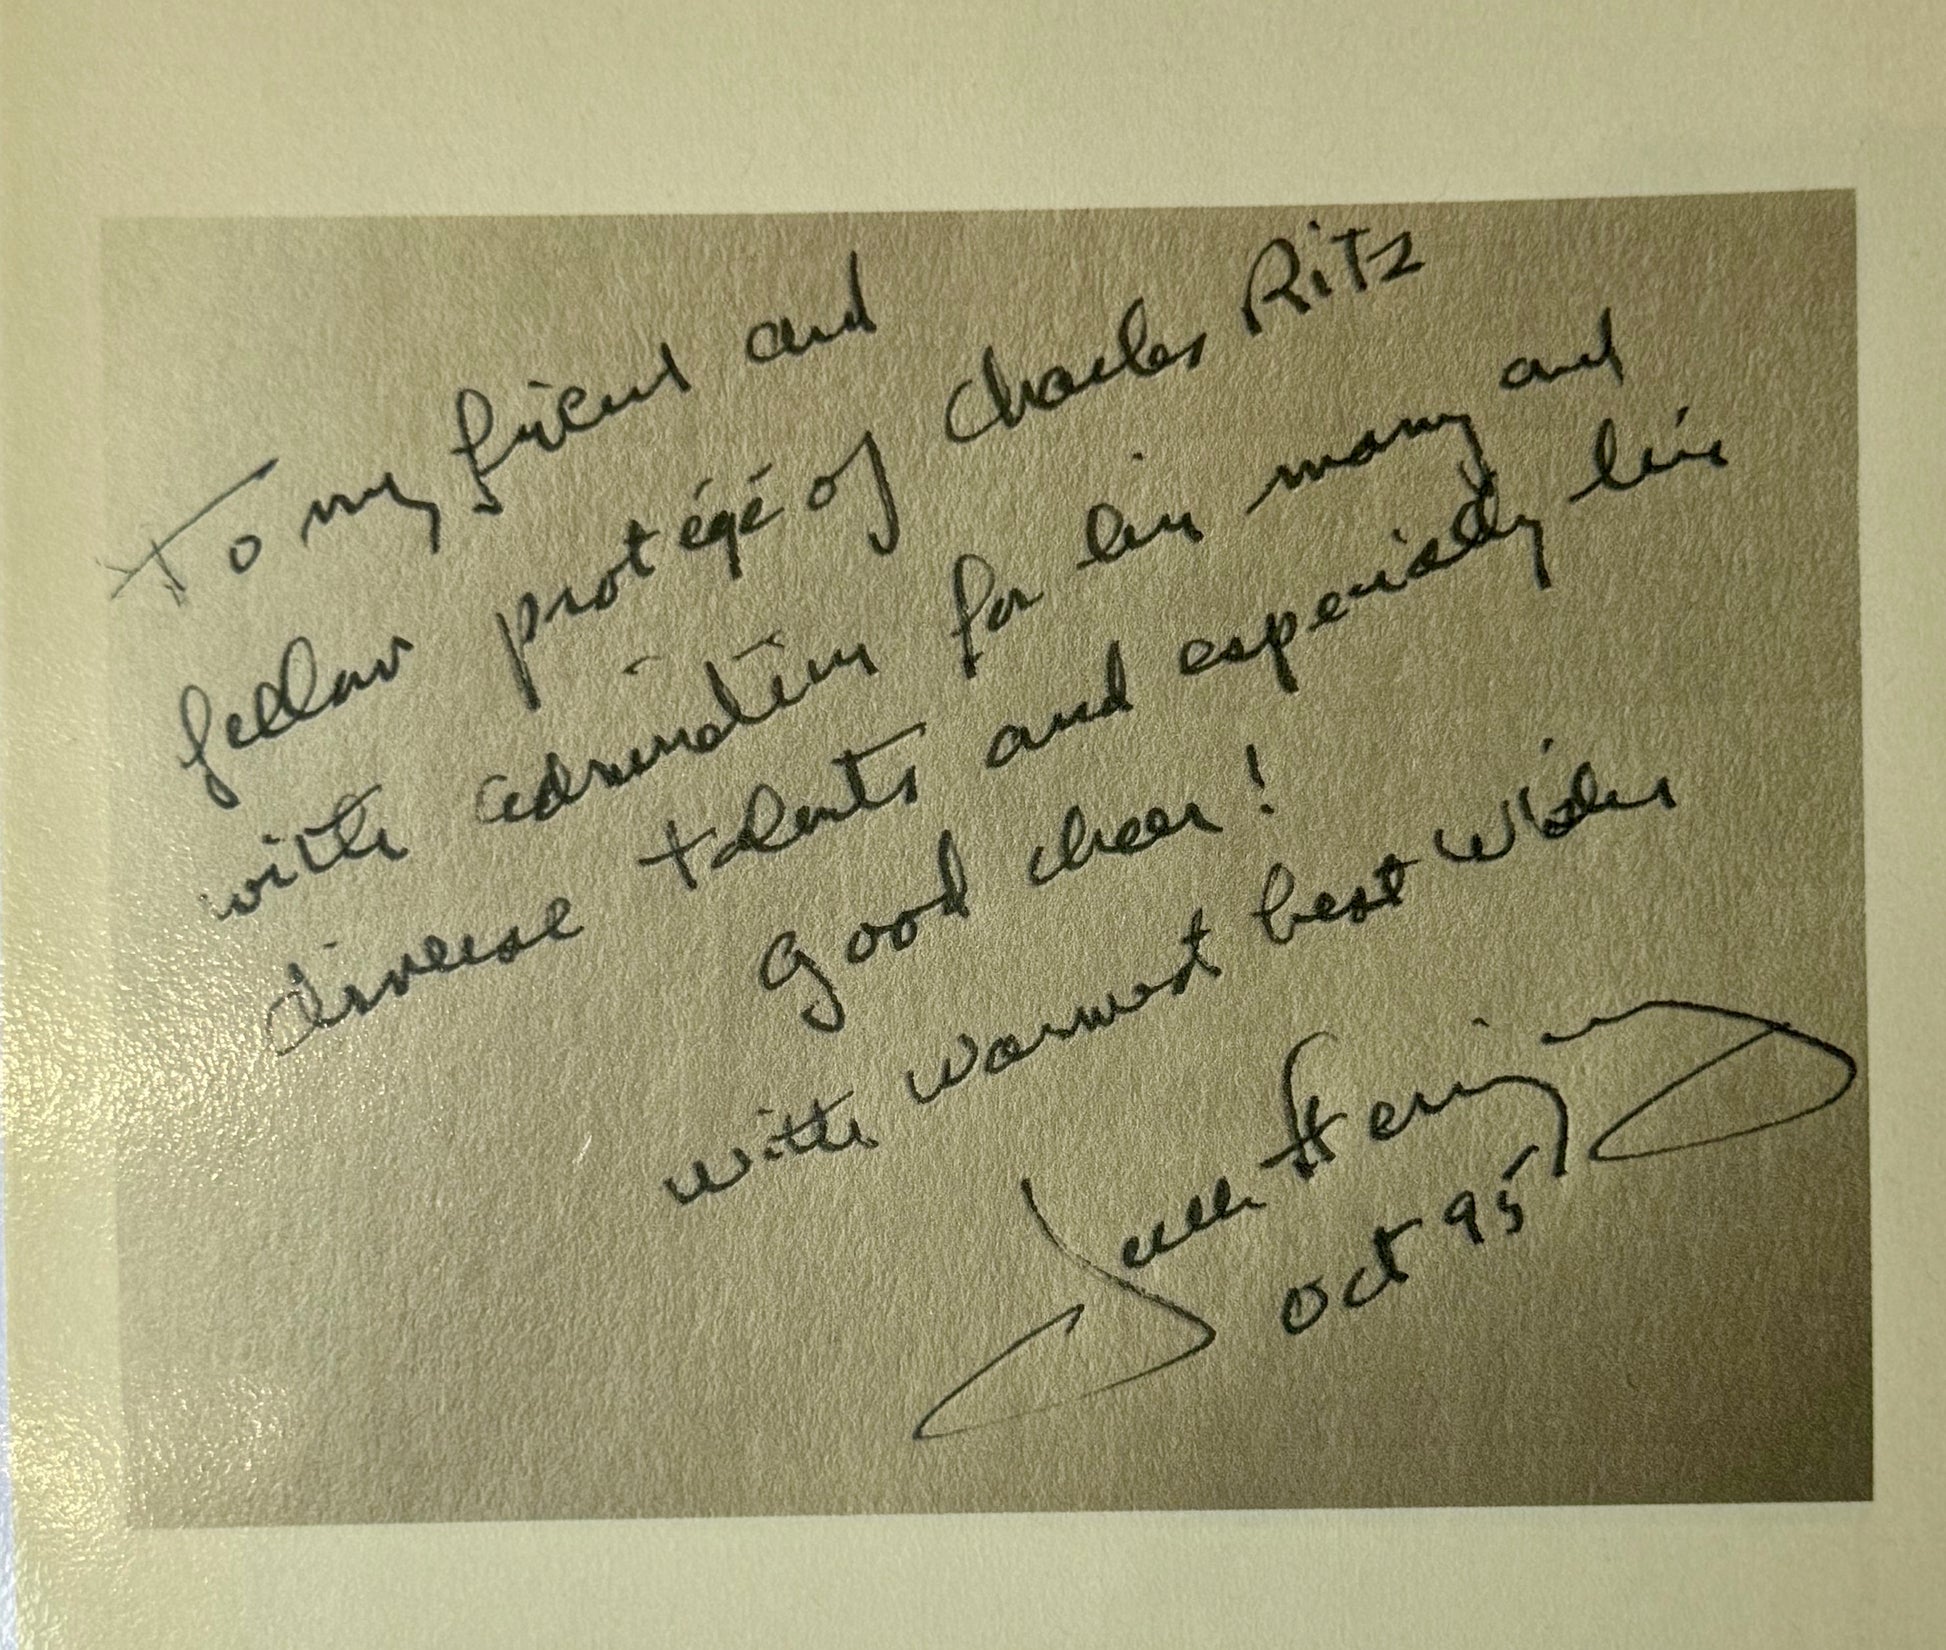 To my friend and
fellow protégé of Charles Ritz
with admiration for his many and
diverse talents and especially his
good cheer!
with warmest best wishes
Oct 95